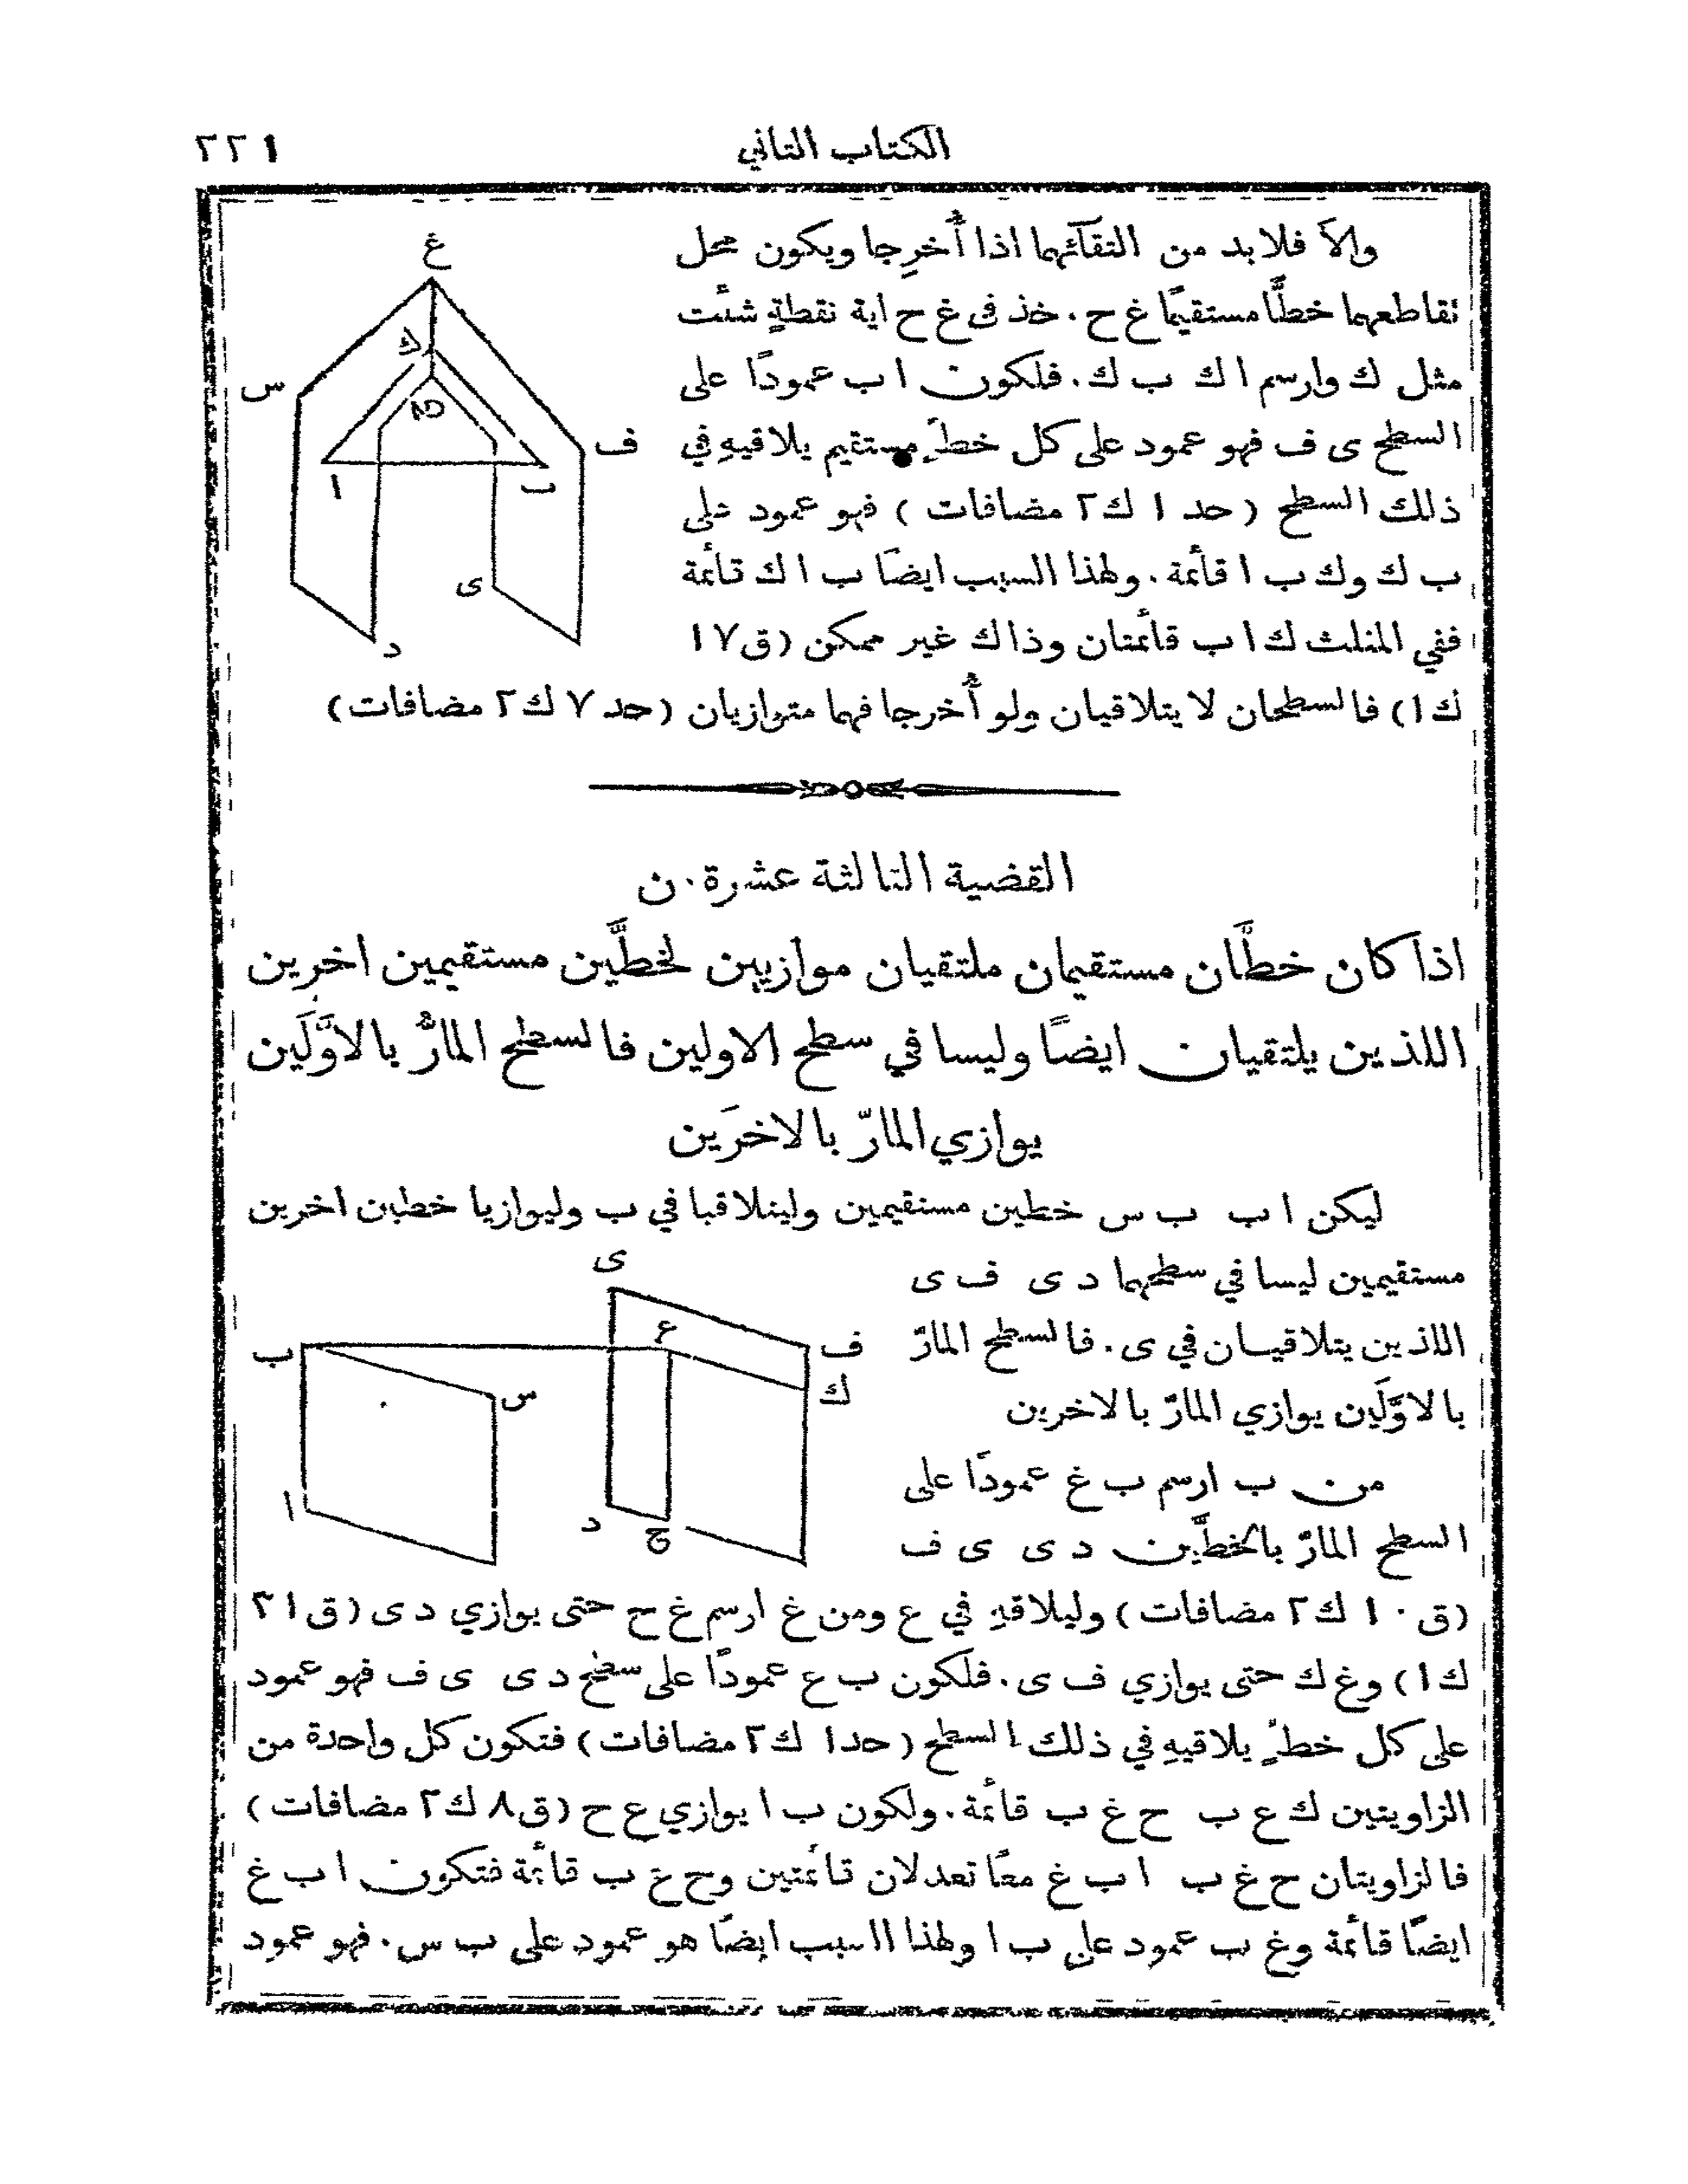 الكتاب الثاني
٢٢١
والاَّ فلا بد من التقائهما اذا أُخرِجا ويكون محل
تقاطعهما خطًّا مستقيمًا غ ح. خذ في غ ح اية نقطةٍ شئت
مثل ك وارسم ا ك ب ك. فلكون ا ب عمودًا على
السطح ى ف فهو عمود على كل خطٍ مستقيم يلاقيهِ في
ذلك السطح (حد ١ ك٢ مضافات) فهو عمود على
ب ك وك ب ا قائمة. ولهذا السبب ايضًا ب ا ك قائمة
ففي المثلث ك ا ب قائمتان وذاك غير ممكن (ق١٧
ك١) فالسطحان لا يتلاقيان ولو أُخرجا فهما متوازيان (حد ٧ ك٢ مضافات)
غ
ك
س
ح
ف
ا
ب
ى
د
القضية الثالثة عشرة. ن
اذا كان خطَّان مستقيمان ملتقيان موازيين لخطَّين مستقيمين اخرين
اللذين يلتقيان ايضًا وليسا في سطح الاولين فالسطح المارُّ بالاوَّلَين
يوازي المارّ بالاخرَين
ليكن ا ب ب س خطين مستقيمين وليتلاقيا في ب وليوازيا خطين اخرين
مستقيمين ليسا في سطحهما د ى ف ى
اللذين يتلاقيان في ى. فالسطح المارّ
بالاوَّلَين يوازي المارّ بالاخرين
من ب ارسم ب غ عمودًا على
السطح المارّ بالخطَّين د ى ى ف
ى
ع
ف
ب
ك
س
ا
د
ح
(ق١٠ ك٢ مضافات) وليلاقهِ في ع ومن غ ارسم غ ح حتى يوازي د ى (ق٣١
ك١) وغ ك حتى يوازي ف ى. فلكون ب ع عمودًا على سطح د ى ى ف فهو عمود
على كل خطٍ يلاقيهِ في ذلك السطح (حد١ ك٢ مضافات) فتكون كل واحدة من
الزاويتين ك ع ب ح غ ب قائمة. ولكون ب ا يوازي ع ح (ق٨ ك٢ مضافات)
فالزاويتان ح غ ب ا ب غ معًا تعدلان قائمتين وح ع ب قائمة فتكون ا ب غ
ايضًا قائمة وغ ب عمود على ب ا ولهذا السبب ايضًا هو عمود على ب س. فهو عمود